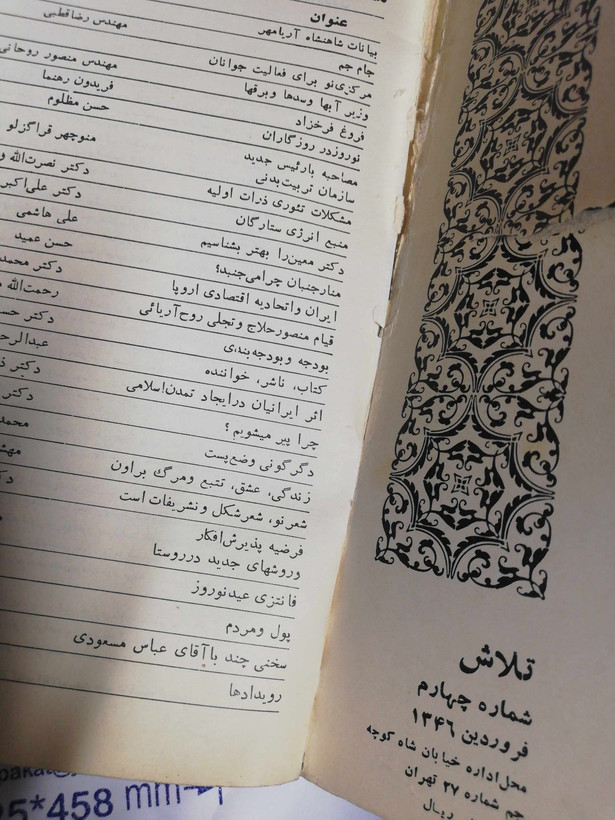 عنوان
بیانات شاهنشاه آریامهر
جام جم مهندس رضاقطبی
مرکزی‌نو برای فعالیت جوانان
وزیر آبها وسدها وبرقها مهندس منصور روحانی
فروغ فرخزاد فریدون رهنما
نوروزدر روزگاران حسن مظلوم
مصاحبه بارئیس جدید
سازمان تربیت‌بدنی منوچهر قراگزلو
مشکلات تئوری ذرات اولیه دکتر نصرت‌الله
منبع انرژی ستارگان دکتر علی‌اکبر
دکتر معین‌را بهتر بشناسیم علی هاشمی
منارجنبان چرامی‌جنبد؟ حسن عمید
ایران واتحادیه اقتصادی اروپا دکتر محمد
قیام منصورحلاج وتجلی روح‌آریائی رحمت‌الله
بودجه وبودجه‌بندی دکتر
کتاب، ناشر، خواننده
اثر ایرانیان درایجاد تمدن‌اسلامی دکتر
چرا پیر میشویم ؟ دکتر
دگرگونی وضع‌پست
زندگی، عشق، تتبع ومرگ براون
شعرنو، شعرشکل وتشریفات است
فرضیه پذیرش‌افکار
وروشهای جدید درروستا
فانتزی عیدنوروز
پول ومردم
سخنی چند باآقای عباس مسعودی
رویدادها
تلاش
شماره چهارم
فروردین ۱۳۴۶
محل‌اداره خیابان شاه کوچه
جم شماره ۲۷ تهران
ریال
5*458 mm